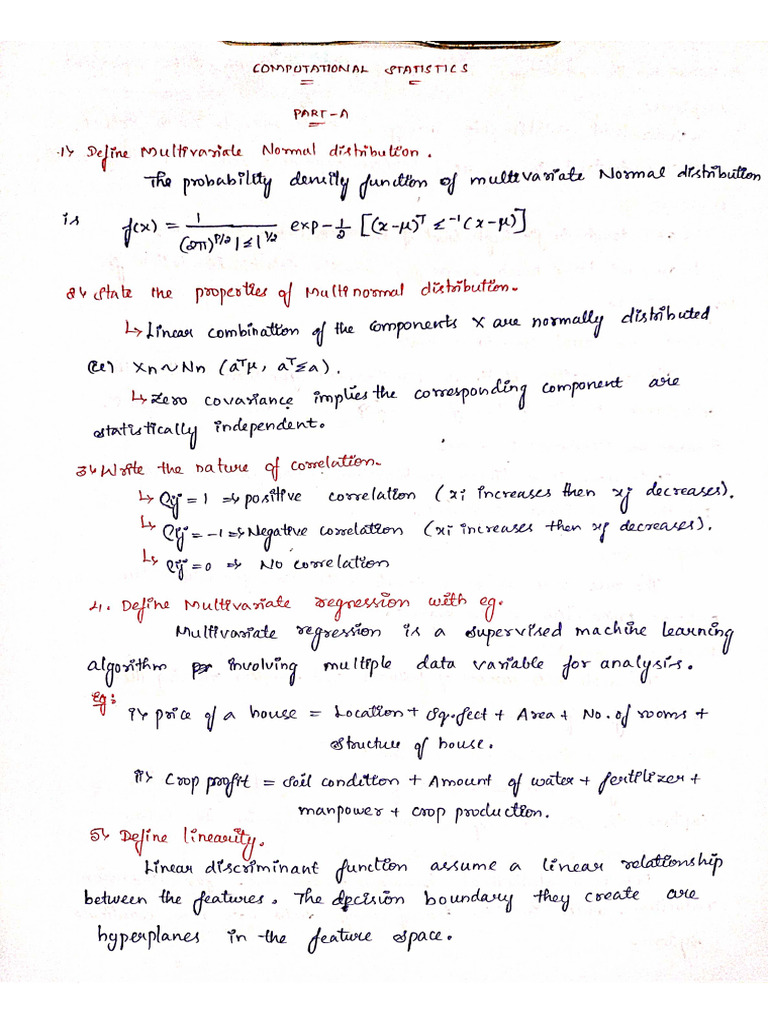 COMPUTATIONAL STATISTICS
PART-A
1) Define Multivariate Normal distribution.
The probability density function of multivariate Normal distribution
is f(x) = 1 / (2π)^P/2 |Σ|^1/2 exp -1/2 [(x-μ)^T Σ^-1 (x-μ)]
2) State the properties of Multinormal distribution.
↳ Linear combination of the components X are normally distributed
(ie) Xn ~ Nn (a^Tμ, a^TΣa).
↳ Zero covariance implies the corresponding component are
statistically independent.
3) Write the nature of correlation.
↳ ρij = 1 ⇒ positive correlation (xi increases then xj decreases).
↳ ρij = -1 ⇒ Negative correlation (xi increases then xj decreases).
↳ ρij = 0 ⇒ No correlation
4. Define Multivariate regression with eg.
Multivariate regression is a supervised machine learning
algorithm involving multiple data variable for analysis.
Eg:
i) price of a house = Location + Sq.feet + Area + No. of rooms +
Structure of house.
ii) Crop profit = Soil condition + Amount of water + fertilizer +
manpower + crop production.
5) Define linearity.
Linear discriminant function assume a linear relationship
between the features. The decision boundary they create are
hyperplanes in the feature space.